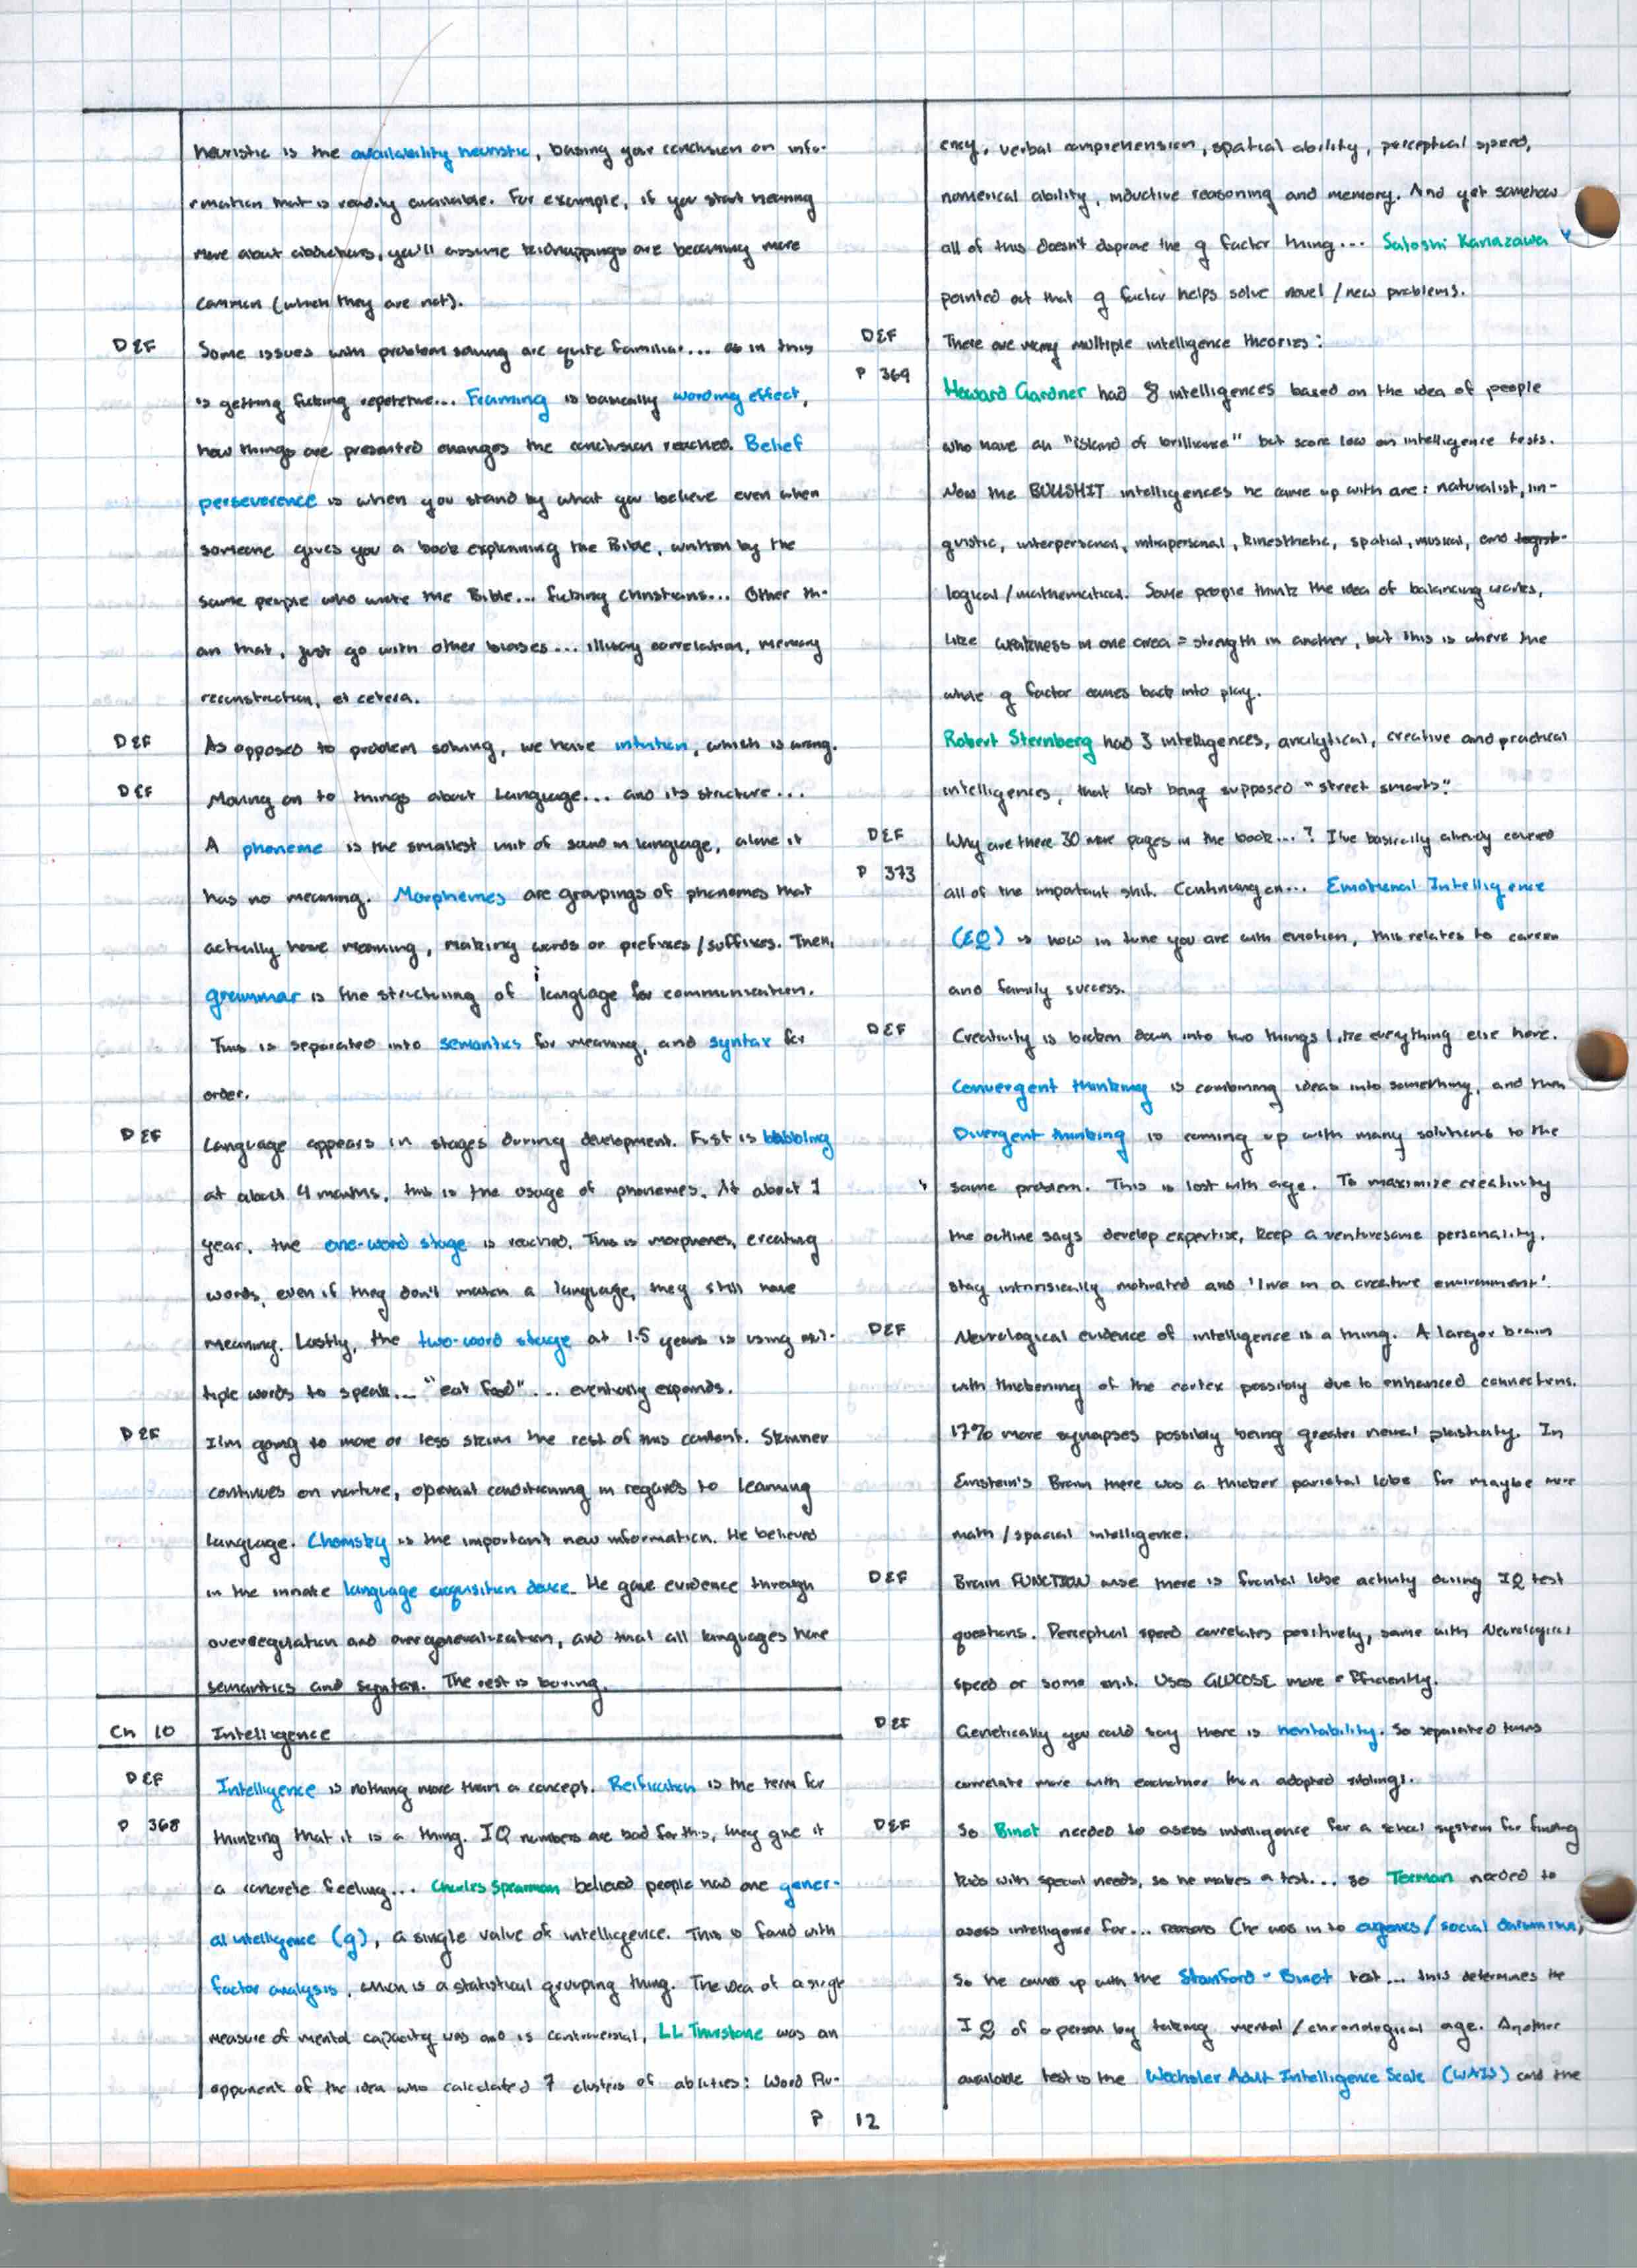 heuristic is the availability heuristic, basing your conclusion on info-
rmation that is readily available. For example, if you start hearing
more about abductions, you'll assume kidnappings are becoming more
common (which they are not).
DEF Some issues with problem solving are quite familiar... as in this
is getting fucking repetetive... Framing is basically wording effect,
how things are presented changes the conclusion reached. Belief
perseverence is when you stand by what you believe even when
someone gives you a book explaining the Bible, written by the
same people who wrote the Bible... fucking christians... Other th-
an that, just go with other biases... illusory correlation, memory
reconstruction, et cetera.
DEF As opposed to problem solving, we have intuition, which is wrong.
DEF Moving on to things about Language... and its structure...
A phoneme is the smallest unit of sound in language, alone it
has no meaning. Morphemes are groupings of phonemes that
actually have meaning, making words or prefixes/suffixes. Then,
grammar is the structuring of language for communication.
This is separated into semantics for meaning, and syntax for
order.
DEF Language appears in stages during development. First is babbling
at about 4 months, this is the usage of phonemes. At about 1
year, the one-word stage is reached. This is morphemes, creating
words, even if they don't match a language, they still have
meaning. Lastly, the two-word stage at 1.5 years is using mul-
tiple words to speak... "eat food"... eventually expands.
DEF I'm going to more or less skim the rest of this content. Skinner
continues on nurture, operant conditioning in regards to learning
language. Chomsky is the important new information. He believed
in the innate language acquisition device. He gave evidence through
overregulation and overgeneralization, and that all languages have
semantics and syntax. The rest is boring.
Ch 10 Intelligence
DEF Intelligence is nothing more than a concept. Reification is the term for
P 368 thinking that it is a thing. IQ numbers are bad for this, they give it
a concrete feeling... Charles Spearman believed people had one gener-
al intelligence (g), a single value of intelligence. This is found with
factor analysis, which is a statistical grouping thing. The idea of a single
measure of mental capacity was and is controversial, LL Thurstone was an
opponent of the idea who calculated 7 clusters of abilities: Word flu-
ency, verbal comprehension, spatial ability, perceptual speed,
numerical ability, inductive reasoning and memory. And yet somehow
all of this doesn't disprove the g factor thing... Satoshi Kanazawa
pointed out that g factor helps solve novel/new problems.
DEF There are many multiple intelligence theories:
P 369 Howard Gardner had 8 intelligences based on the idea of people
who have an "island of brilliance" but score low on intelligence tests.
Now the BULLSHIT intelligences he came up with are: naturalist, lin-
guistic, interpersonal, intrapersonal, kinesthetic, spatial, musical, and
logical/mathematical. Some people think the idea of balancing works,
like weakness in one area = strength in another, but this is where the
whole g factor comes back into play.
Robert Sternberg had 3 intelligences, analytical, creative and practical
intelligences, that last being supposed "street smarts".
DEF Why are there 30 more pages in the book...? I've basically already covered
P 373 all of the important shit. Continuing on... Emotional Intelligence
(EQ) is how in tune you are with emotion, this relates to career
and family success.
DEF Creativity is broken down into two things like everything else here.
Convergent thinking is combining ideas into something, and then
Divergent thinking is coming up with many solutions to the
same problem. This is lost with age. To maximize creativity
the outline says develop expertise, keep a venturesome personality,
stay intrinsically motivated and 'live in a creative environment'.
DEF Neurological evidence of intelligence is a thing. A larger brain
with thickening of the cortex possibly due to enhanced connections.
17% more synapses possibly being greater neural plasticity. In
Einstein's Brain there was a thicker parietal lobe for maybe more
math/spacial intelligence.
DEF Brain FUNCTION wise there is frontal lobe activity during IQ test
questions. Perceptual speed correlates positively, same with Neurological
speed or some shit. Uses GLUCOSE more efficiently.
DEF Genetically you could say there is heritability. So separated twins
correlate more with eachother then adopted siblings.
DEF So Binet needed to asess intelligence for a school system for finding
kids with special needs, so he makes a test... so Terman needed to
asess intelligence for... reasons (he was in to eugenics/social darwinism,
so he came up with the Stanford-Binet test... this determines the
IQ of a person by taking mental/chronological age. Another
available test is the Wechsler Adult Intelligence Scale (WAIS) and the
P 12